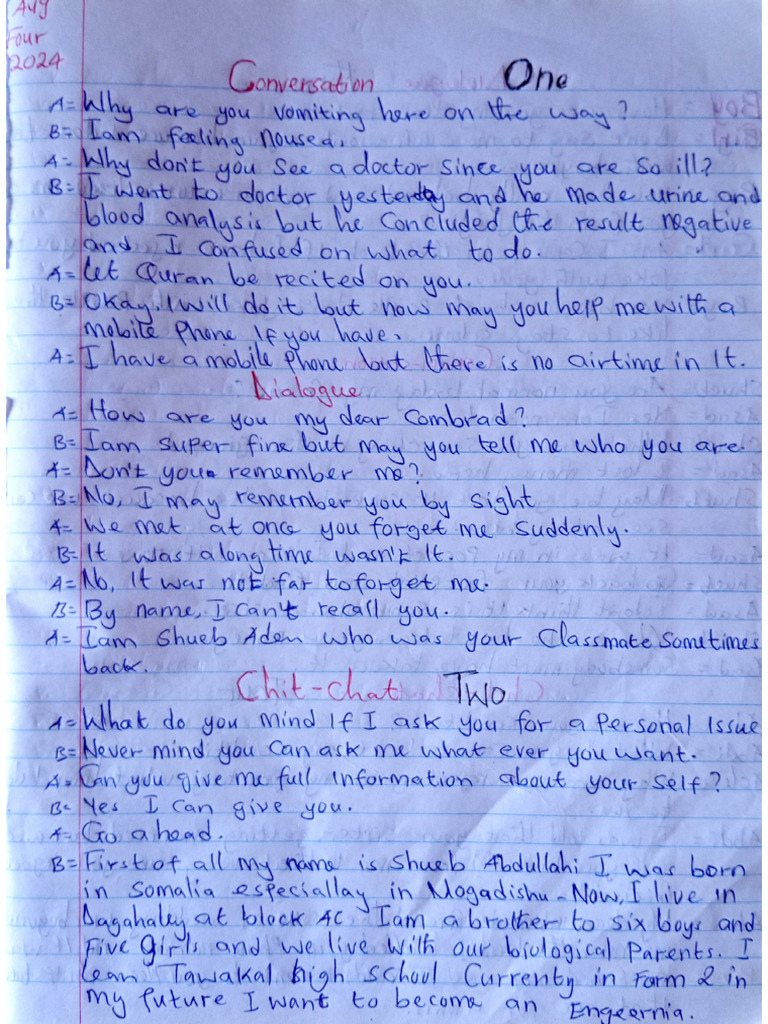 Aug
Four
2024
Conversation One
A= Why are you vomiting here on the way?
B= Iam feeling nousea.
A= Why don't you see a doctor since you are so ill?
B= I went to doctor yesterday and he made urine and
blood analysis but he concluded the result negative
and I confused on what to do.
A= Let Quran be recited on you.
B= Okay, I will do it but now may you help me with a
mobile phone If you have.
A= I have a mobile phone but there is no airtime in It.
Dialogue
A= How are you my dear Combrad?
B= Iam super fine but may you tell me who you are.
A= Don't you remember me?
B= No, I may remember you by sight
A= We met at once you forget me suddenly.
B= It was along time wasn't It.
A= No, It was not far to forget me.
B= By name, I can't recall you.
A= Iam Shueb Aden who was your Classmate sometimes
back.
Chit-chat TWO
A= What do you mind If I ask you for a personal Issue
B= Never mind you can ask me what ever you want.
A= Can you give me full Information about your self?
B= Yes I can give you.
A= Go ahead.
B= First of all my name is Shueb Abdullahi I was born
in Somalia especiallay in Mogadishu. Now, I live in
Dagahaley at block AC Iam a brother to six boys and
Five Girls and we live with our biological Parents. I
lean Tawakal high school Currenty in Form 2 in
my future I want to become an Engeernia.